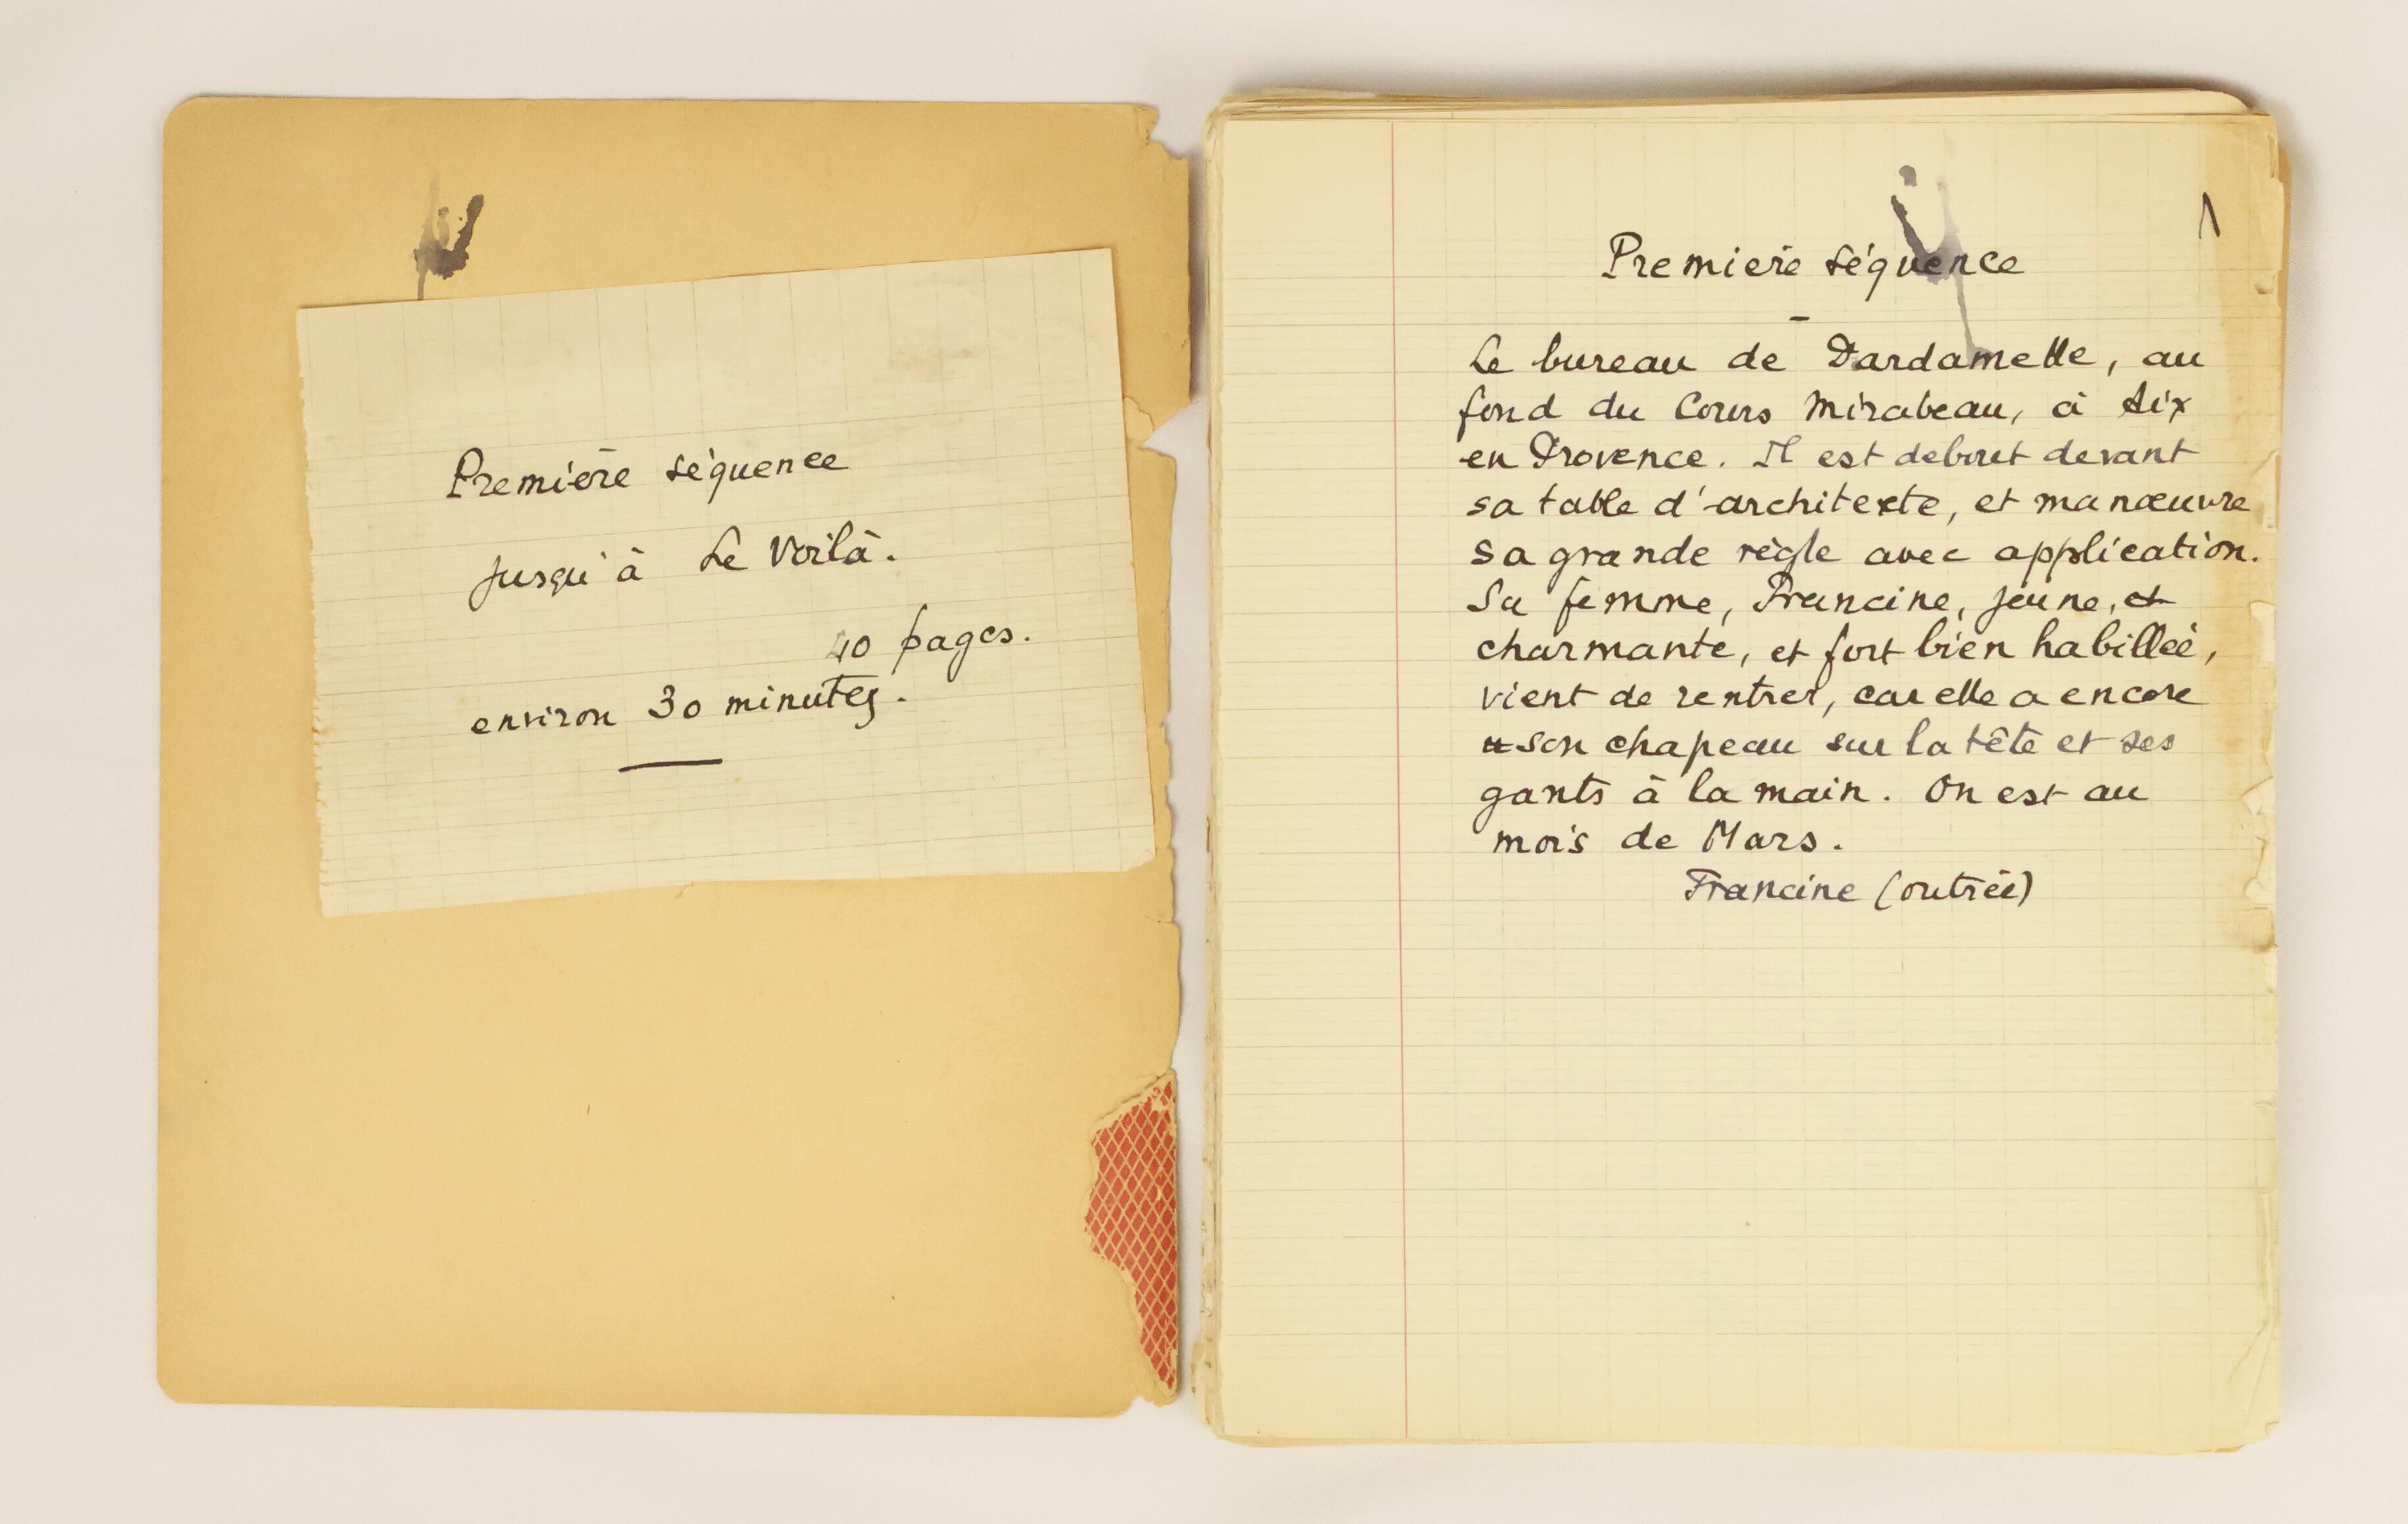 Première séquence
jusqu'à Le Voilà.
40 pages.
environ 30 minutes.
1
Première séquence
Le bureau de Dardamelle, au
fond du Cours Mirabeau, à Aix
en Provence. Il est debout devant
sa table d'architecte, et manœuvre
sa grande règle avec application.
Sa femme, Francine, jeune, et
charmante, et fort bien habillée,
vient de rentrer, car elle a encore
son chapeau sur la tête et ses
gants à la main. On est au
mois de Mars.
Francine (outrée)